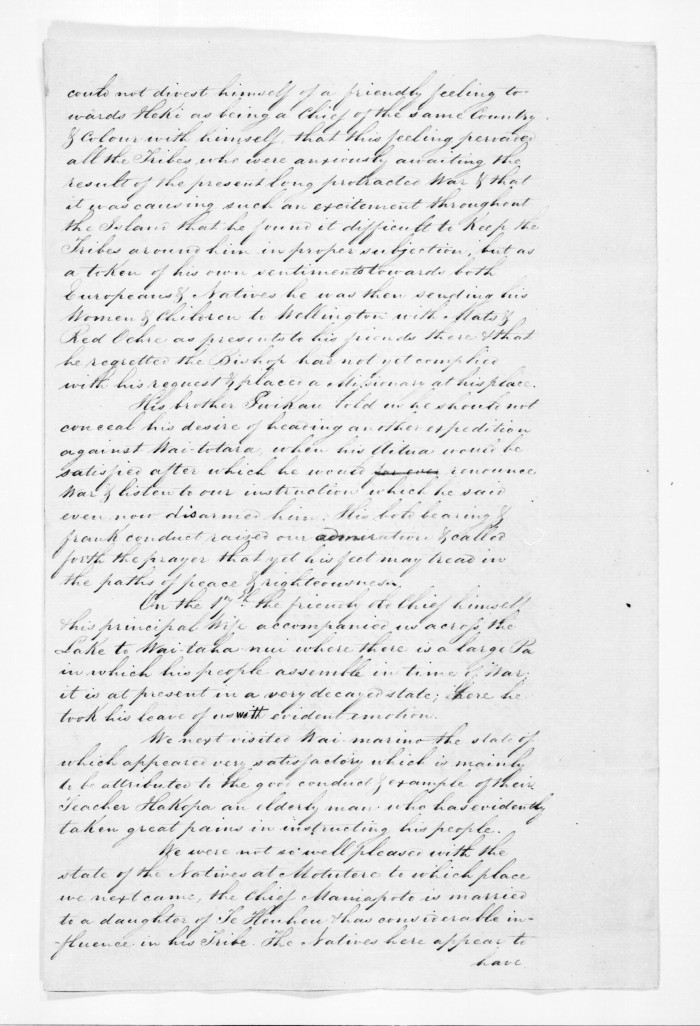 could not divest himself of a friendly feeling to
wards Heki as being a Chief of the same Country
& Colour with himself, that this feeling pervaded
all the Tribes, who were anxiously awaiting the
result of the present long protracted War & that
it was causing such an excitement throughout
the Island that he found it difficult to Keep the
Tribes around him in proper subjection, but as
a token of his own sentiments towards both
Europeans & Natives he was then sending his
Women & Children to Wellington with Mats &
Red Ochre as presents to his friends there & that
he regretted the Bishop had not yet complied
with his request & placed a Missionary at his place.
His brother Puikau told us he should not
conceal his desire of heading another expedition
against Wai-totara, when his Utua would be
satisfied after which he would for ever renounce
War & listen to our instruction which he said
even now disarmed him. His bold bearing &
frank conduct raised our admiration & called
forth the prayer that yet his feet may tread in
the paths of peace & righteousness.
On the 17th the friendly old Chief himself
& his principal Wife accompanied us across the
Lake to Wai-taha-nui where there is a large Pa
in which his people assemble in time of War;
it is at present in a very decayed state; here he
took his leave of us with evident emotion.
We next visited Wai-marino the state of
which appeared very satisfactory which is mainly
to be attributed to the good conduct & example of their
Teacher HaKopa an elderly man who has evidently
taken great pains in instructing his people.
We were not so well pleased with the
state of the Natives at Motutere to which place
we next came, the Chief Maniapoto is married
to a daughter of Te Heuheu & has considerable in-
-fluence in his Tribe. The Natives here appear to
have